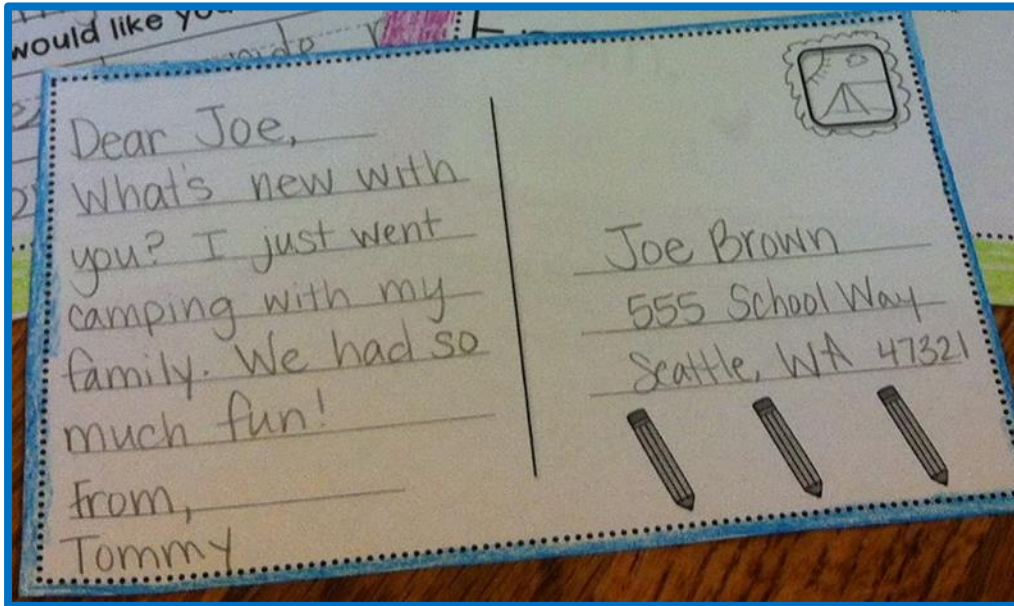 would like you
Dear Joe,
What's new with
you? I just went
camping with my
family. We had so
much fun!
From,
Tommy
Joe Brown
555 School Way
Seattle, WA 47321